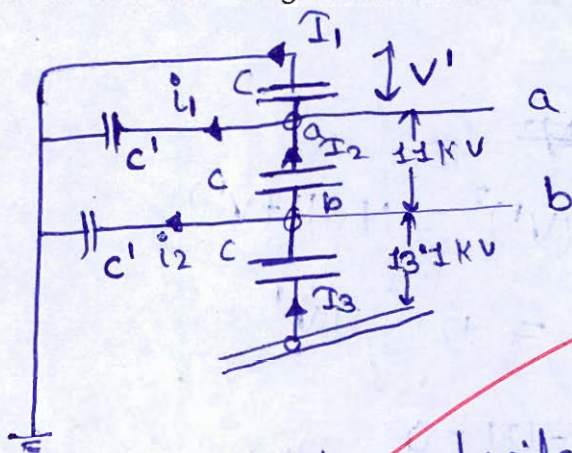 I1
C V'
i1 a
C' a I2 11KV
C b
b
C' i2 C 13.1KV
I3